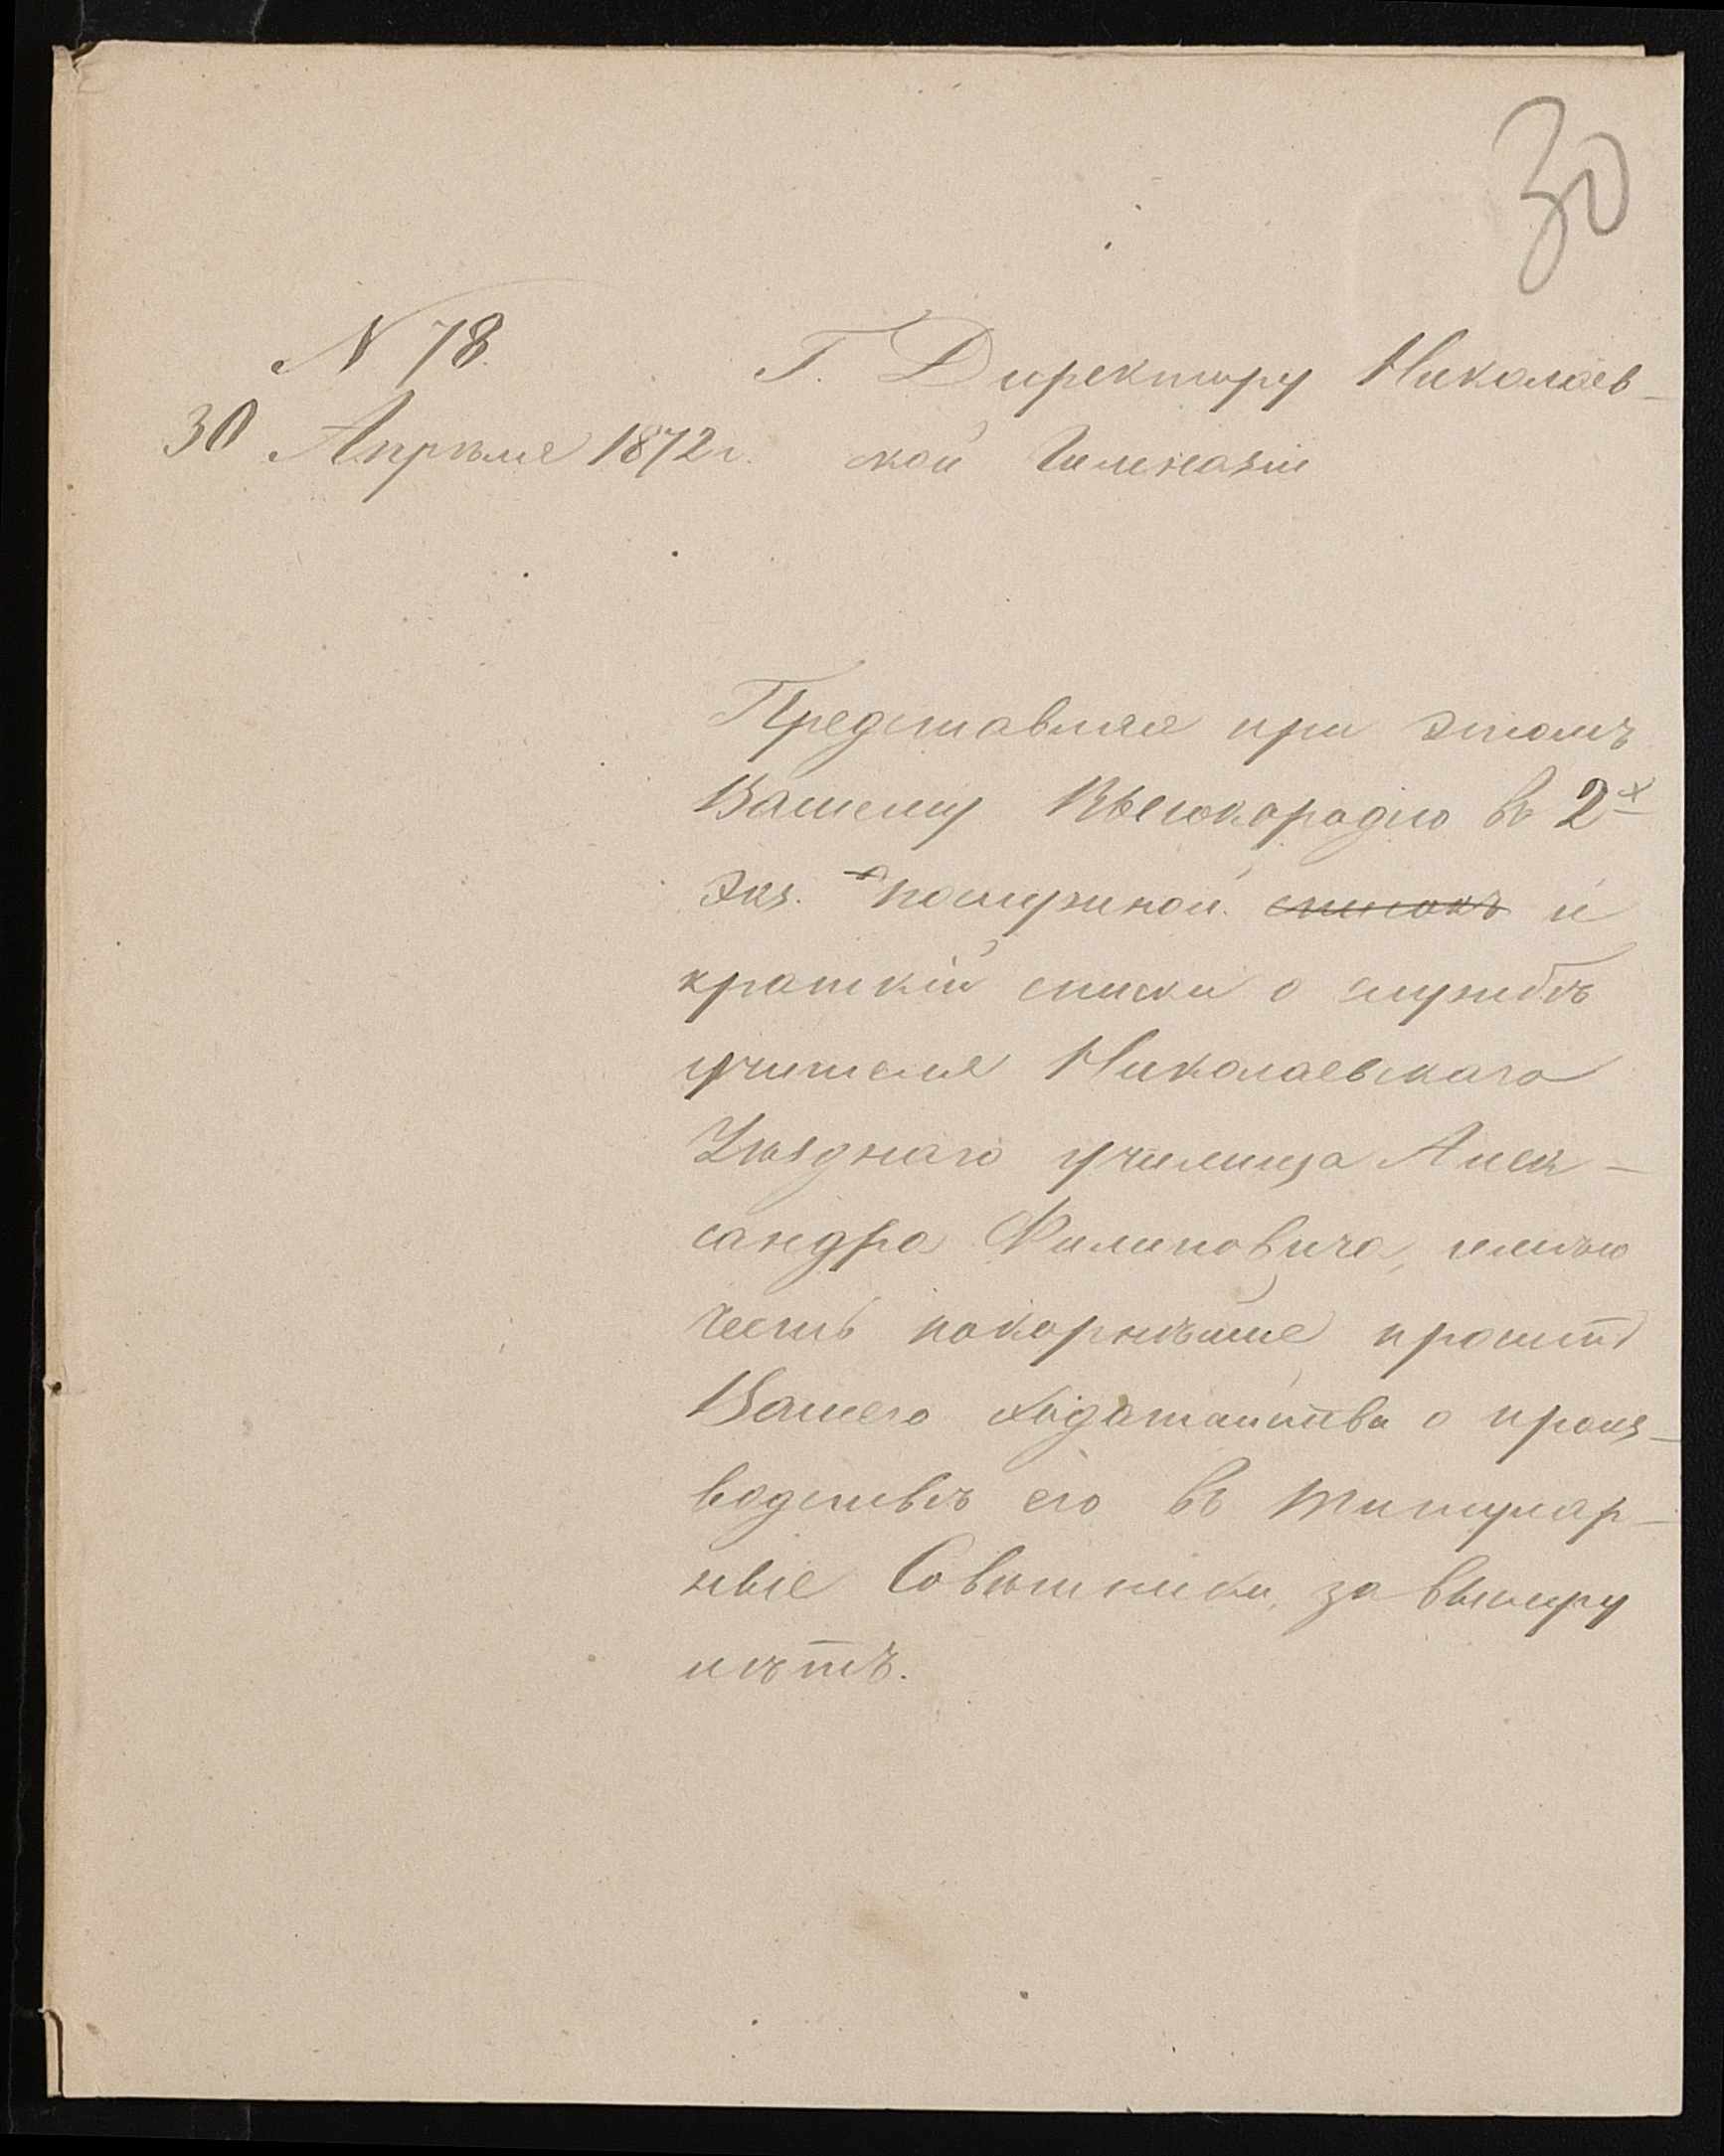 30
N 78.
30 Апрѣля 1872 г.
Г. Директору Николаев-
ской Гимназіи
Представляя при этомъ
Вашему Высокородію въ 2х
экз. послужной списокъ и
краткій списки о службѣ
учителя Николаевскаго
Уѣзднаго училища Алек-
сандра Филиповича, имѣю
честь покорнѣйше просить
Вашего ходатайства о произ-
водствѣ его въ титуляр-
ные Совѣтники, за выслугу
лѣтъ.